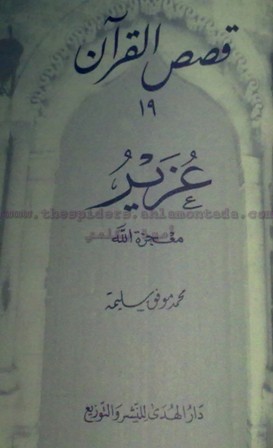 قصص القرآن
١٩
عُزَيْرُ
www.thespiders.ahlamontada.com
معجزة الله
محمد موفق سليمة
دار الهدى للنشر والتوزيع